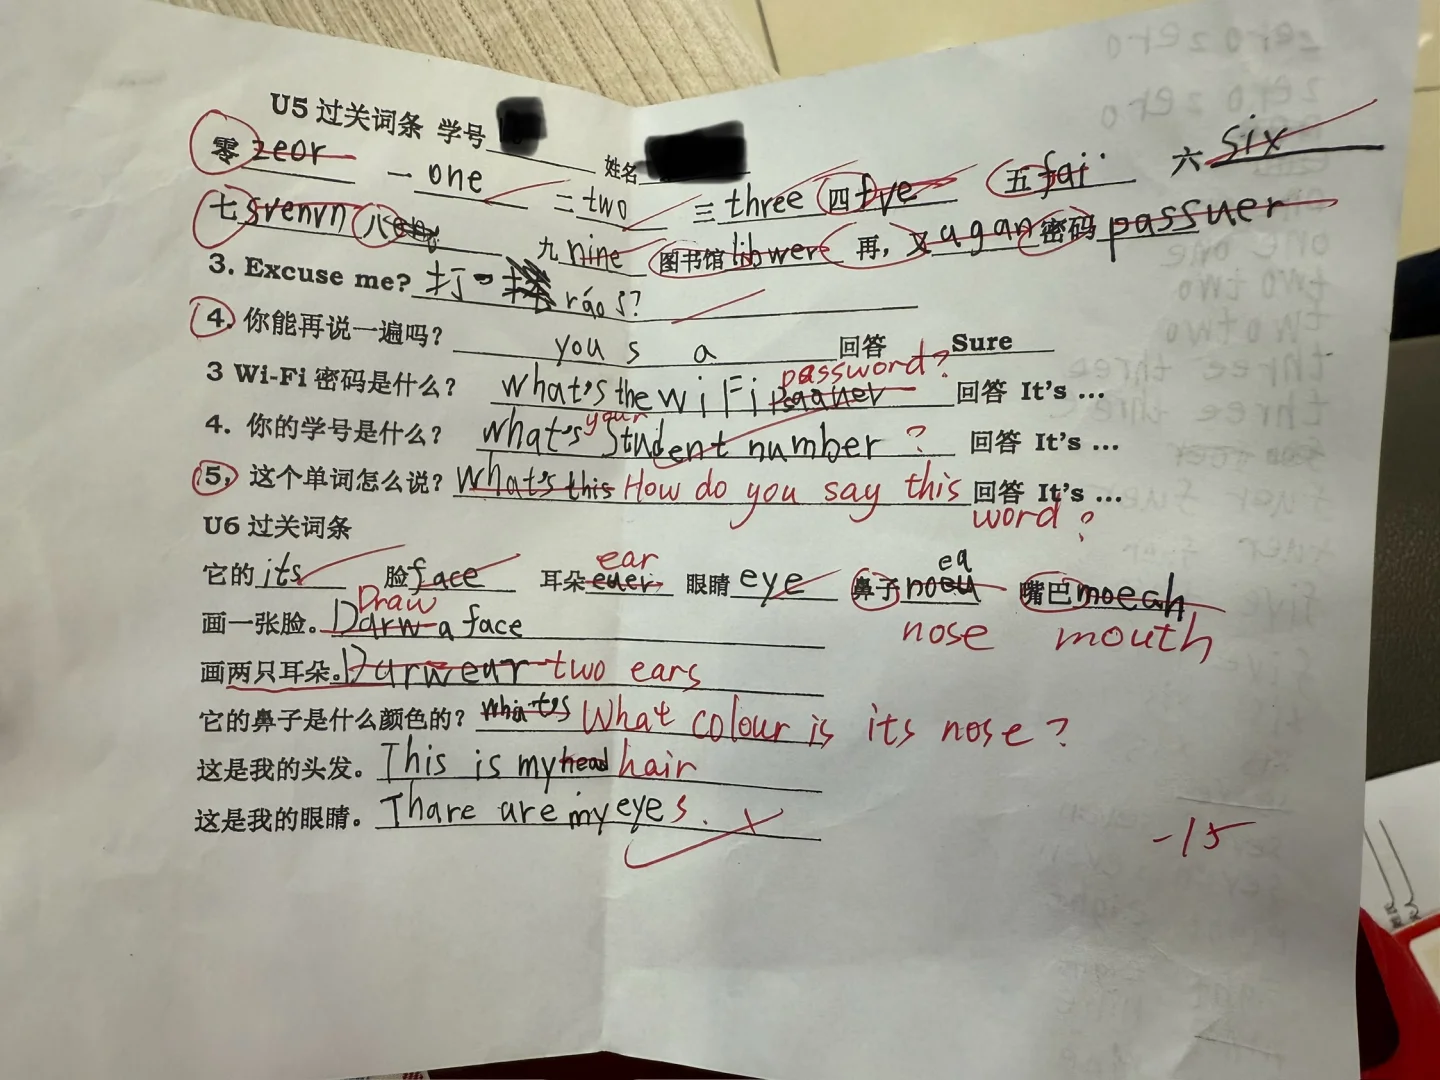 U5 过关词条 学号 姓名
零 zeor 一 one 二 two 三 three 四 fve 五 fai 六 six
七 svenvn 八 九 nine 图书馆 libwer 再，又 agan 密码 passuer
3. Excuse me? 打一 ráo s?
4. 你能再说一遍吗？ you s a 回答 Sure
password?
3 Wi-Fi 密码是什么？ what's the wiFi 回答 It's ...
your
4. 你的学号是什么？ what's student number ? 回答 It's ...
5, 这个单词怎么说？ What's this How do you say this 回答 It's ...
word ?
U6 过关词条
ear ea
它的 its 脸 face 耳朵 euer 眼睛 eye 鼻子 noeu 嘴巴 moeah
Draw nose mouth
画一张脸。 Darw a face
画两只耳朵。 Darwear two ears
它的鼻子是什么颜色的？ what's What colour is its nose ?
这是我的头发。 This is my head hair
这是我的眼睛。 Thare are my eyes.
-15